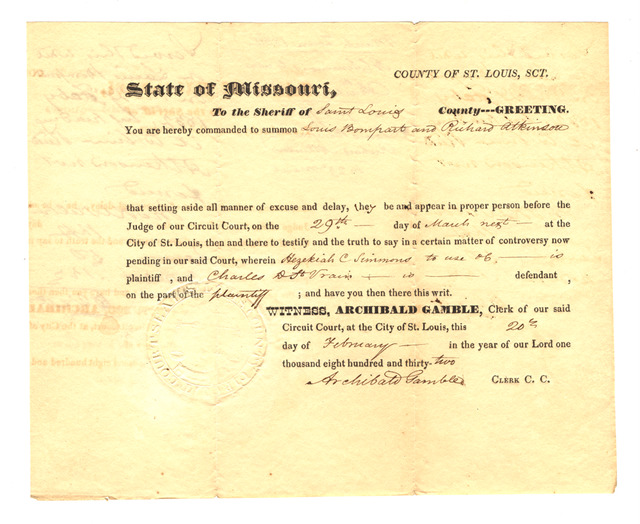 COUNTY OF ST. LOUIS, SCT.
State of Missouri,
To the Sheriff of Saint Louis County---GREETING.
You are hereby commanded to summon Louis Bompart and Richard Atkinson
that setting aside all manner of excuse and delay, they be and appear in proper person before the
Judge of our Circuit Court, on the 29th day of March next at the
City of St. Louis, then and there to testify and the truth to say in a certain matter of controversy now
pending in our said Court, wherein Hezekiah C Simmons, to use &c, is
plaintiff , and Charles D St Vrain is defendant ,
on the part of the plaintiff ; and have you then there this writ.
WITNESS, ARCHIBALD GAMBLE, Clerk of our said
Circuit Court, at the City of St. Louis, this 20th
day of February in the year of our Lord one
thousand eight hundred and thirty-two
Archibald Gamble CLERK C. C.